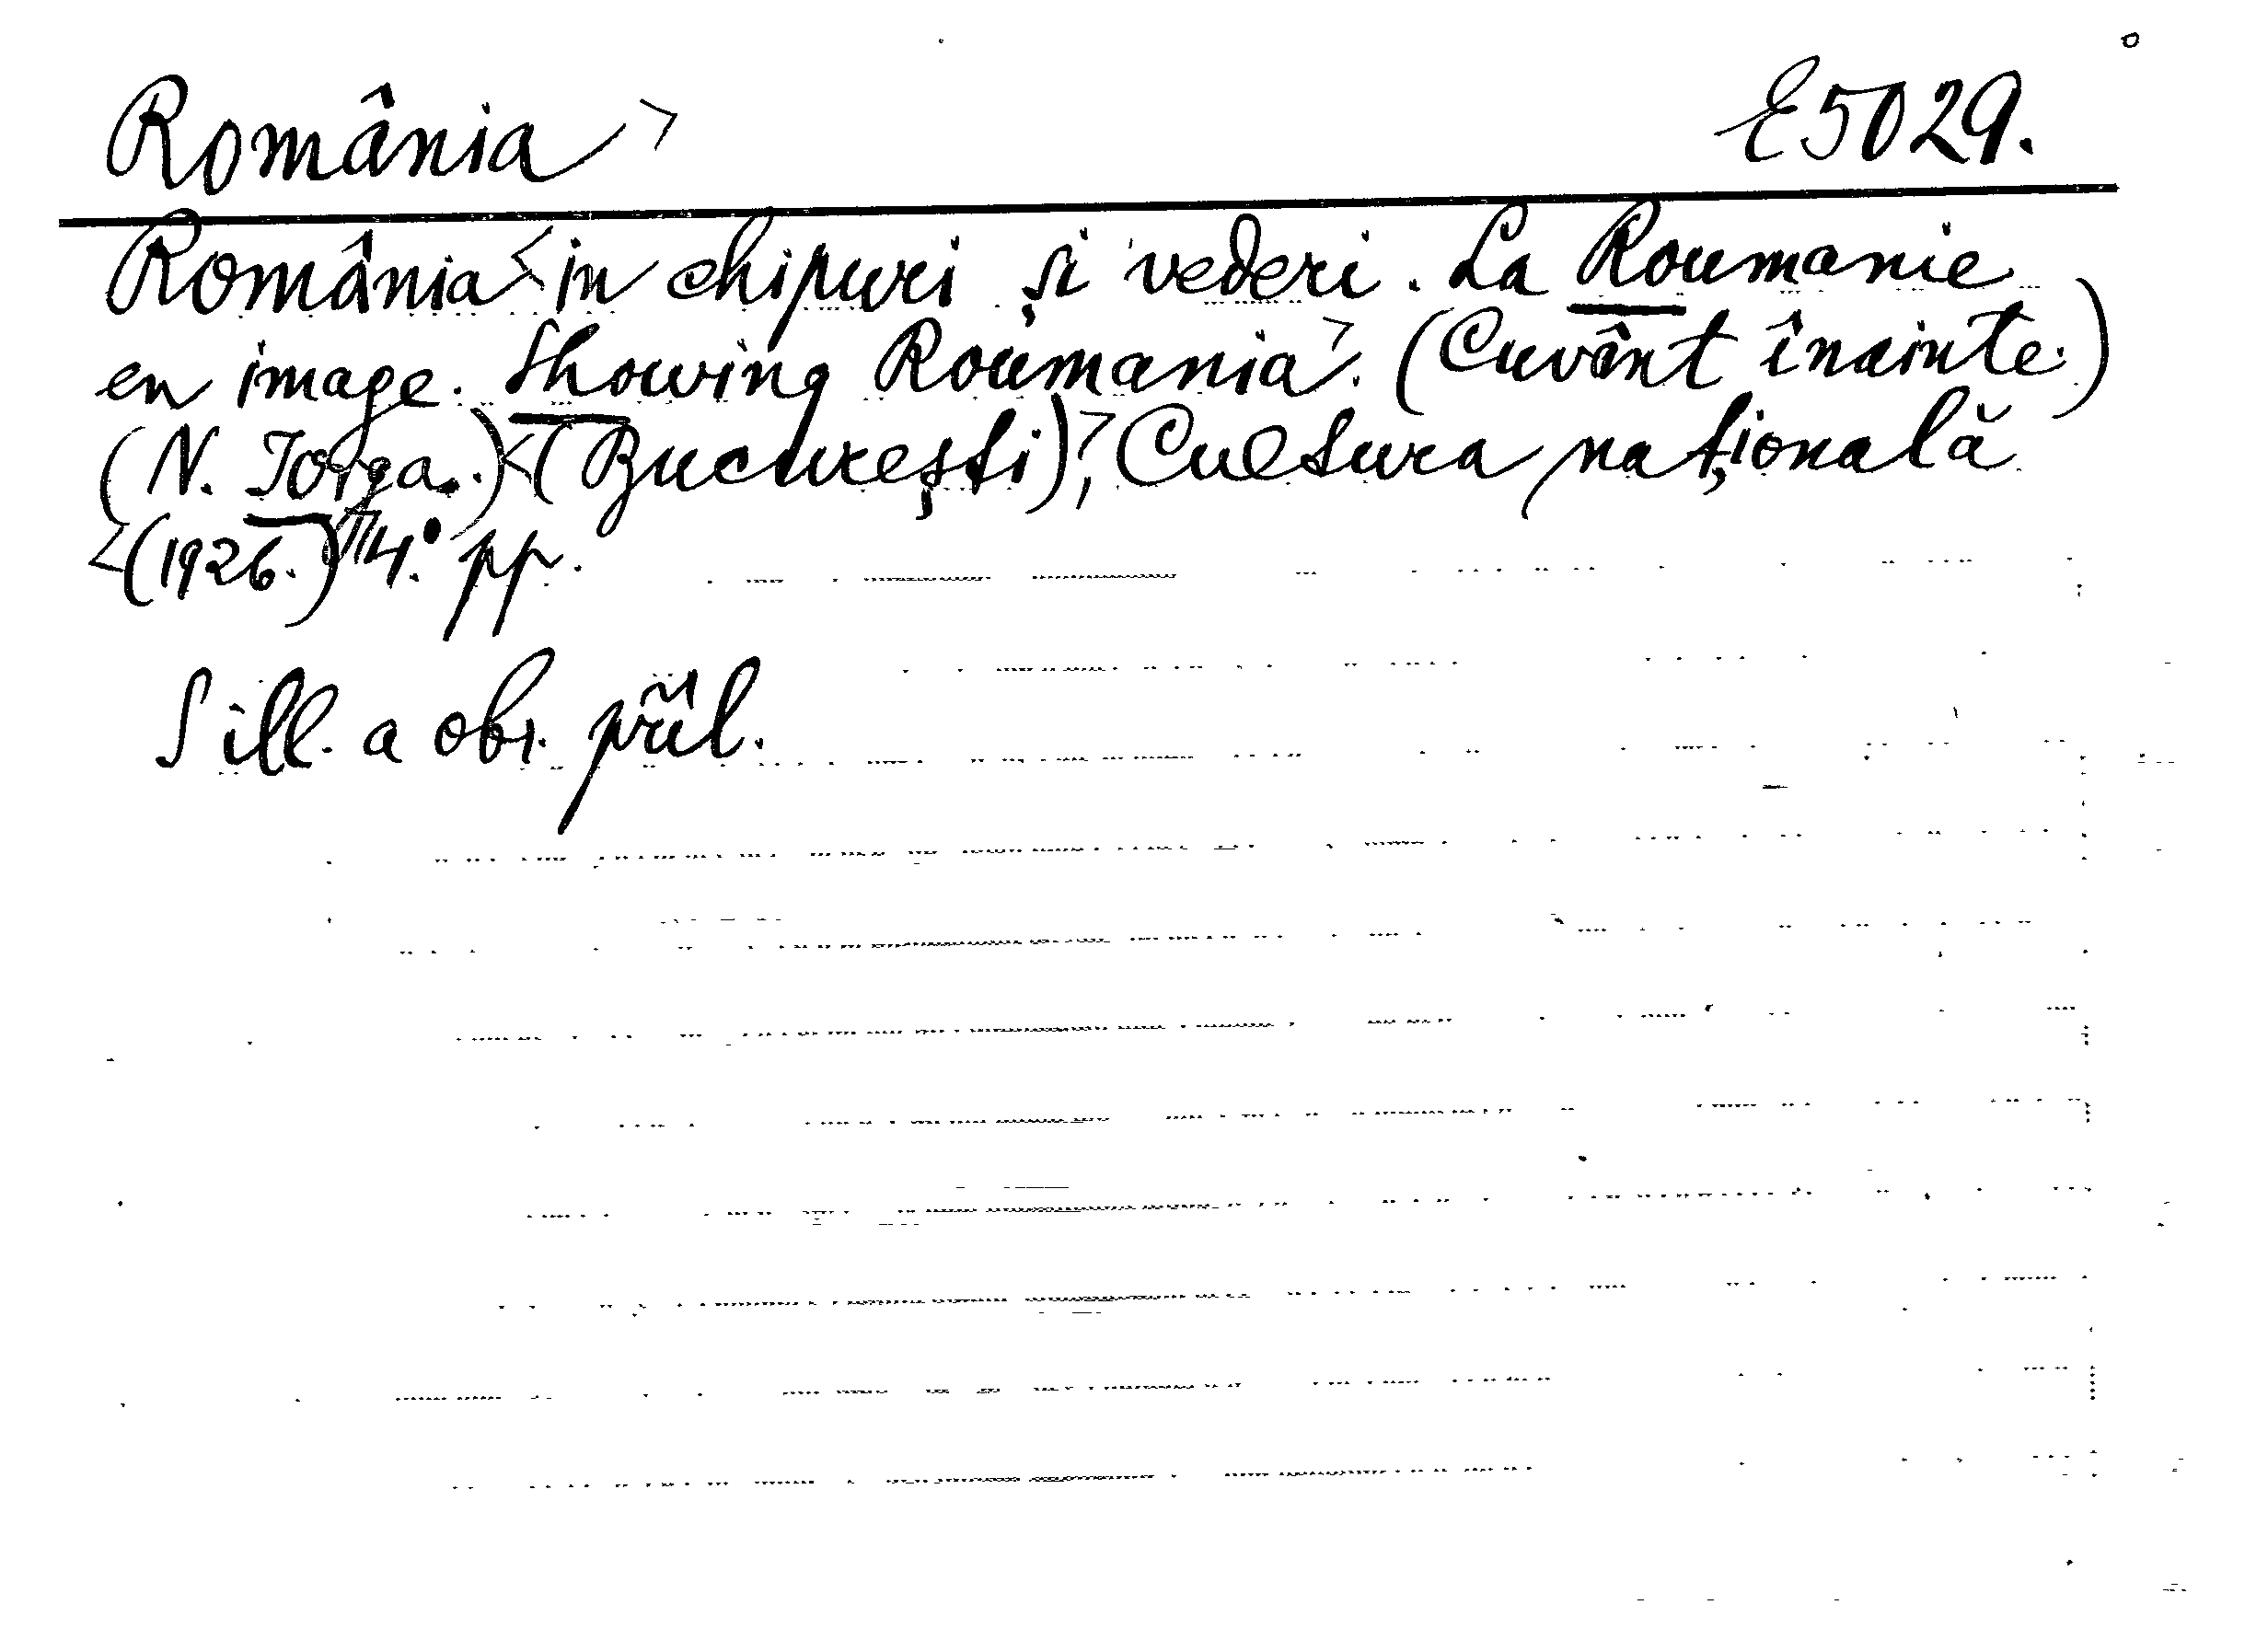 România > E5029.
România < in chipuri și vederi. La Roumanie
en image. Showing Roumania>. (Cuvînt înainte.)
(N. Iorga.) < (București)>, Cultura națională
<(1926.) 4.° pp.
S ill. a obr. příl.